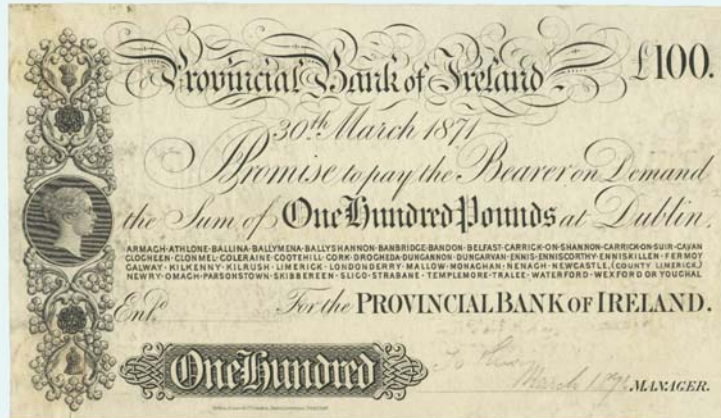 Provincial Bank of Ireland £100.
30th March 1871
I Promise to pay the Bearer on Demand
the Sum of One Hundred Pounds at Dublin.
ARMAGH·ATHLONE·BALLINA·BALLYMENA·BALLYSHANNON·BANBRIDGE·BANDON·BELFAST·CARRICK-ON-SHANNON·CARRICK-ON-SUIR·CAVAN
CLOGHEEN·CLONMEL·COLERAINE·COOTEHILL·CORK·DROGHEDA·DUNGANNON·DUNGARVAN·ENNIS·ENNISCORTHY·ENNISKILLEN·FERMOY
GALWAY·KILKENNY·KILRUSH·LIMERICK·LONDONDERRY·MALLOW·MONAGHAN·NENAGH·NEWCASTLE, (COUNTY LIMERICK,)
NEWRY·OMAGH·PARSONSTOWN·SKIBBEREEN·SLIGO·STRABANE·TEMPLEMORE·TRALEE·WATERFORD·WEXFORD OR YOUGHAL
Entd. For the PROVINCIAL BANK OF IRELAND.
One Hundred
March
MANAGER.